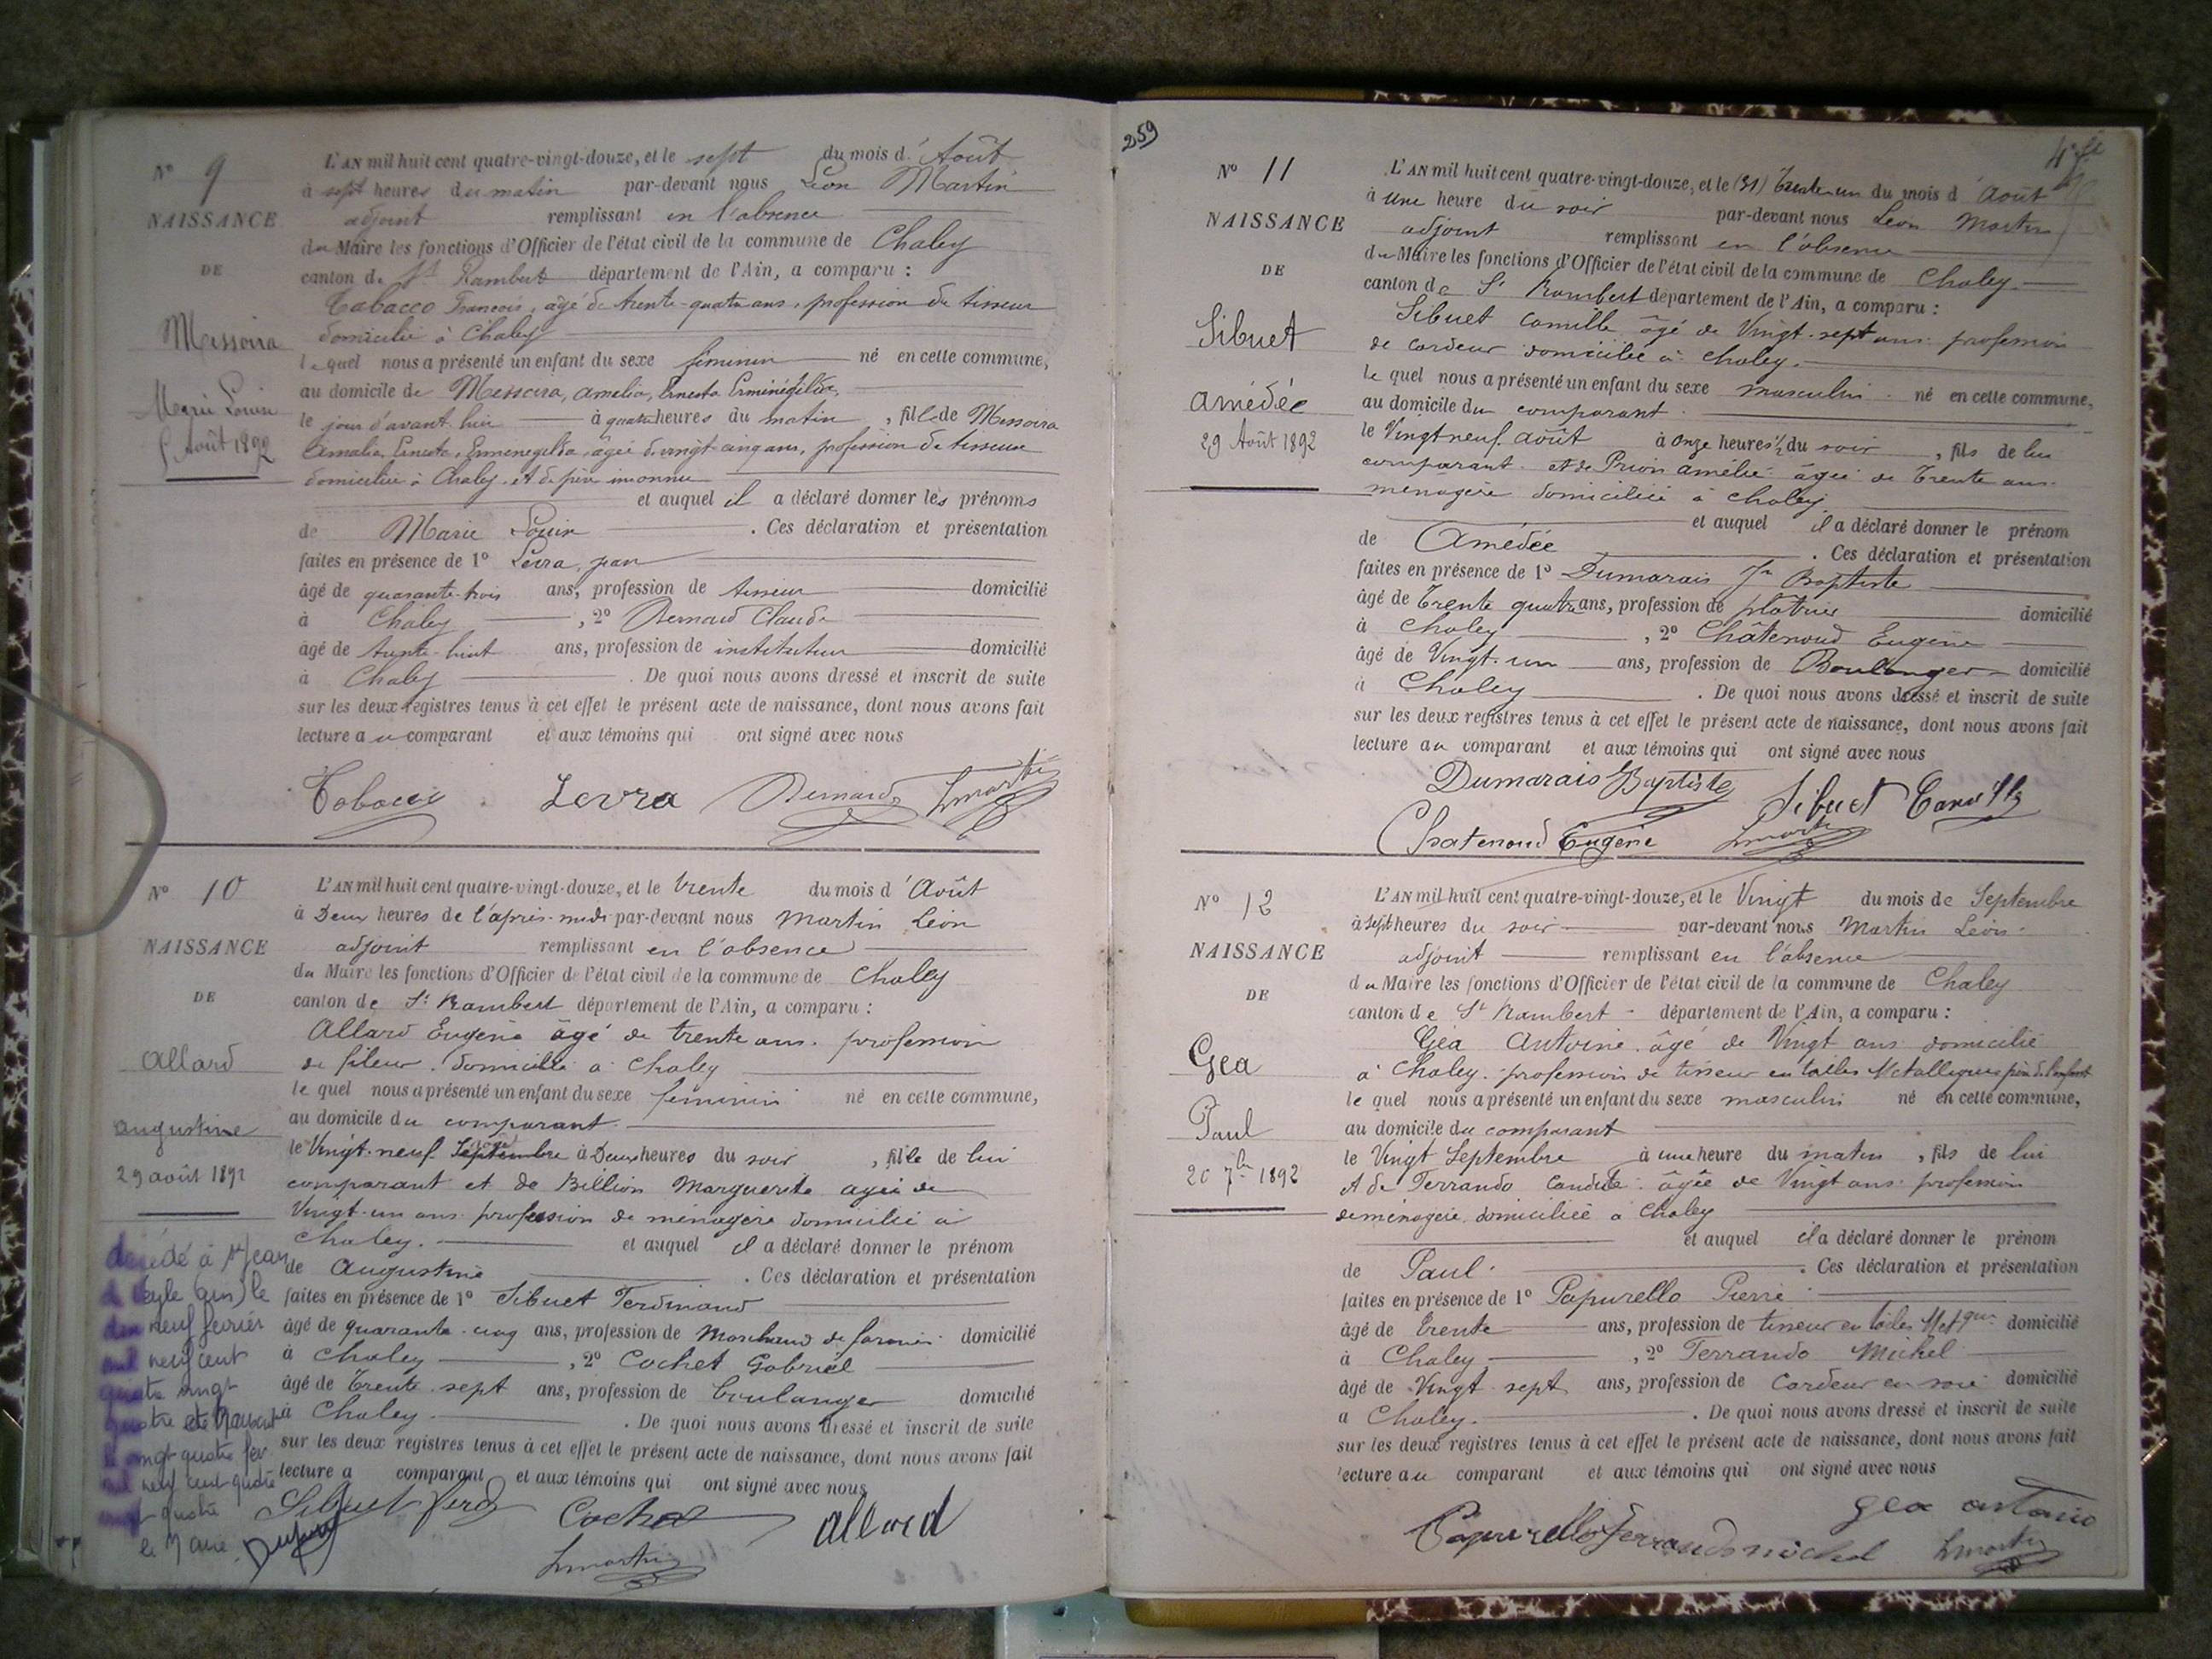 N° 9
NAISSANCE
DE
Messoira
Marie Louise
5 Août 1892
L'AN mil huit cent quatre-vingt-douze, et le sept du mois d'Août
à sept heures du matin par-devant nous Léon Martin
adjoint remplissant en l'absence
du Maire les fonctions d'Officier de l'état civil de la commune de Chaley
canton de St Rambert département de l'Ain, a comparu :
Tabacco François, âgé de trente-quatre ans, profession de tisseur
domicilié à Chaley
lequel nous a présenté un enfant du sexe féminin né en cette commune,
au domicile de Messoira, Amelia, Ernesta Erménégilda,
le jour d'avant hier à quatre heures du matin, fille de Messoira
Amalia, Ernesta, Ermenegilda, âgée de vingt-cinq ans, profession de tisseuse
domiciliée à Chaley et de père inconnu
et auquel il a déclaré donner les prénoms
de Marie Louise . Ces déclaration et présentation
faites en présence de 1° Levra, jean
âgé de quarante-trois ans, profession de tisseur domicilié
à Chaley , 2° Bernard Claude
âgé de trente-huit ans, profession de instituteur domicilié
à Chaley . De quoi nous avons dressé et inscrit de suite
sur les deux registres tenus à cet effet le présent acte de naissance, dont nous avons fait
lecture au comparant et aux témoins qui ont signé avec nous
Tobacco Levra Bernard Lmartin
N° 10
NAISSANCE
DE
Allard
augustine
29 août 1892
L'AN mil huit cent quatre-vingt-douze, et le trente du mois d'Août
à Deux heures de l'après-midi par-devant nous Martin Léon
adjoint remplissant en l'absence
du Maire les fonctions d'Officier de l'état civil de la commune de Chaley
canton de St Rambert département de l'Ain, a comparu :
Allard Eugène âgé de trente ans. profession
de fileur. domicilié à Chaley
lequel nous a présenté un enfant du sexe féminin né en cette commune,
au domicile du comparant.
le Vingt-neuf Septembre à Deux heures du soir , fille de lui
comparant et de Billion Marguerite agée de
Vingt-un ans profession de ménagère domicilié à
Chaley. et auquel il a déclaré donner le prénom
de Augustine . Ces déclaration et présentation
faites en présence de 1° Sibuet Ferdinand
âgé de quarante-cinq ans, profession de Marchand de farines domicilié
à Chaley , 2° Cochet Gabriel
âgé de Trente-sept ans, profession de boulanger domicilié
à Chaley. . De quoi nous avons dressé et inscrit de suite
sur les deux registres tenus à cet effet le présent acte de naissance, dont nous avons fait
lecture a comparant et aux témoins qui ont signé avec nous
Sibuet ferd Cochet allard
Lmartin
décédé à St Jean
Veyle (ain) le
dix neuf février
mil neuf cent
quatre vingt
quatre
le vingt quatre fev
mil neuf cent quatre
vingt quatre
le Maire
259
4e ft
N° 11
NAISSANCE
DE
Sibuet
Amédée
29 Août 1892
L'AN mil huit cent quatre-vingt-douze, et le (31) Trente-un du mois d'Août
à une heure du soir par-devant nous Léon Martin
adjoint remplissant en l'absence
du Maire les fonctions d'Officier de l'état civil de la commune de Chaley
canton de St Rambert département de l'Ain, a comparu :
Sibuet Camille âgé de Vingt-sept ans profession
de cardeur domicilié à Chaley.
lequel nous a présenté un enfant du sexe masculin né en cette commune,
au domicile du comparant.
le Vingt neuf août à onze heures 1/2 du soir , fils de lui
comparant et de Prion Amélie âgée de Trente ans
ménagère domiciliée à Chaley
et auquel il a déclaré donner le prénom
de Amédée . Ces déclaration et présentation
faites en présence de 1° Dumarais Jn Baptiste
âgé de Trente quatre ans, profession de plâtrier domicilié
à Chaley , 2° Châtenoud Eugène
âgé de Vingt-un ans, profession de Boulanger domicilié
à Chaley . De quoi nous avons dressé et inscrit de suite
sur les deux registres tenus à cet effet le présent acte de naissance, dont nous avons fait
lecture au comparant et aux témoins qui ont signé avec nous
Dumarais Baptiste Sibuet Camille
Chatenoud Eugène Lmartin
N° 12
NAISSANCE
DE
Gea
Paul
20 7bre 1892
L'AN mil huit cent quatre-vingt-douze, et le Vingt du mois de Septembre
à sept heures du soir par-devant nous Martin Léon
adjoint remplissant en l'absence
du Maire les fonctions d'Officier de l'état civil de la commune de Chaley
canton de St Rambert département de l'Ain, a comparu :
Géa Antoine âgé de Vingt ans domicilié
à Chaley. profession de tisseur en toiles Métalliques père de l'enfant
lequel nous a présenté un enfant du sexe masculin né en cette commune,
au domicile du comparant
le Vingt Septembre à une heure du matin , fils de lui
et de Ferrando Candide âgée de Vingt ans profession
de ménagère domiciliée à Chaley
et auquel il a déclaré donner le prénom
de Paul . Ces déclaration et présentation
faites en présence de 1° Papurello Pierre
âgé de trente ans, profession de tisseur en toiles Metques domicilié
à Chaley , 2° Ferrando Michel
âgé de Vingt sept ans, profession de Cardeur en soie domicilié
à Chaley. . De quoi nous avons dressé et inscrit de suite
sur les deux registres tenus à cet effet le présent acte de naissance, dont nous avons fait
lecture au comparant et aux témoins qui ont signé avec nous
gea antonio
Papurello Ferrando michel Lmartin